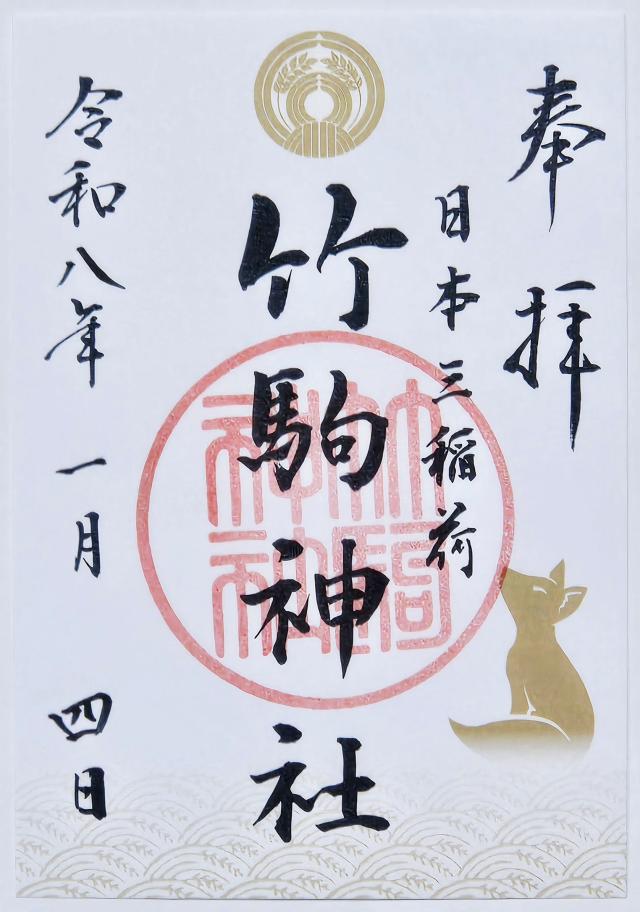 奉拝
日本三稲荷
竹駒神社
竹駒神社
令和八年 一月 四日